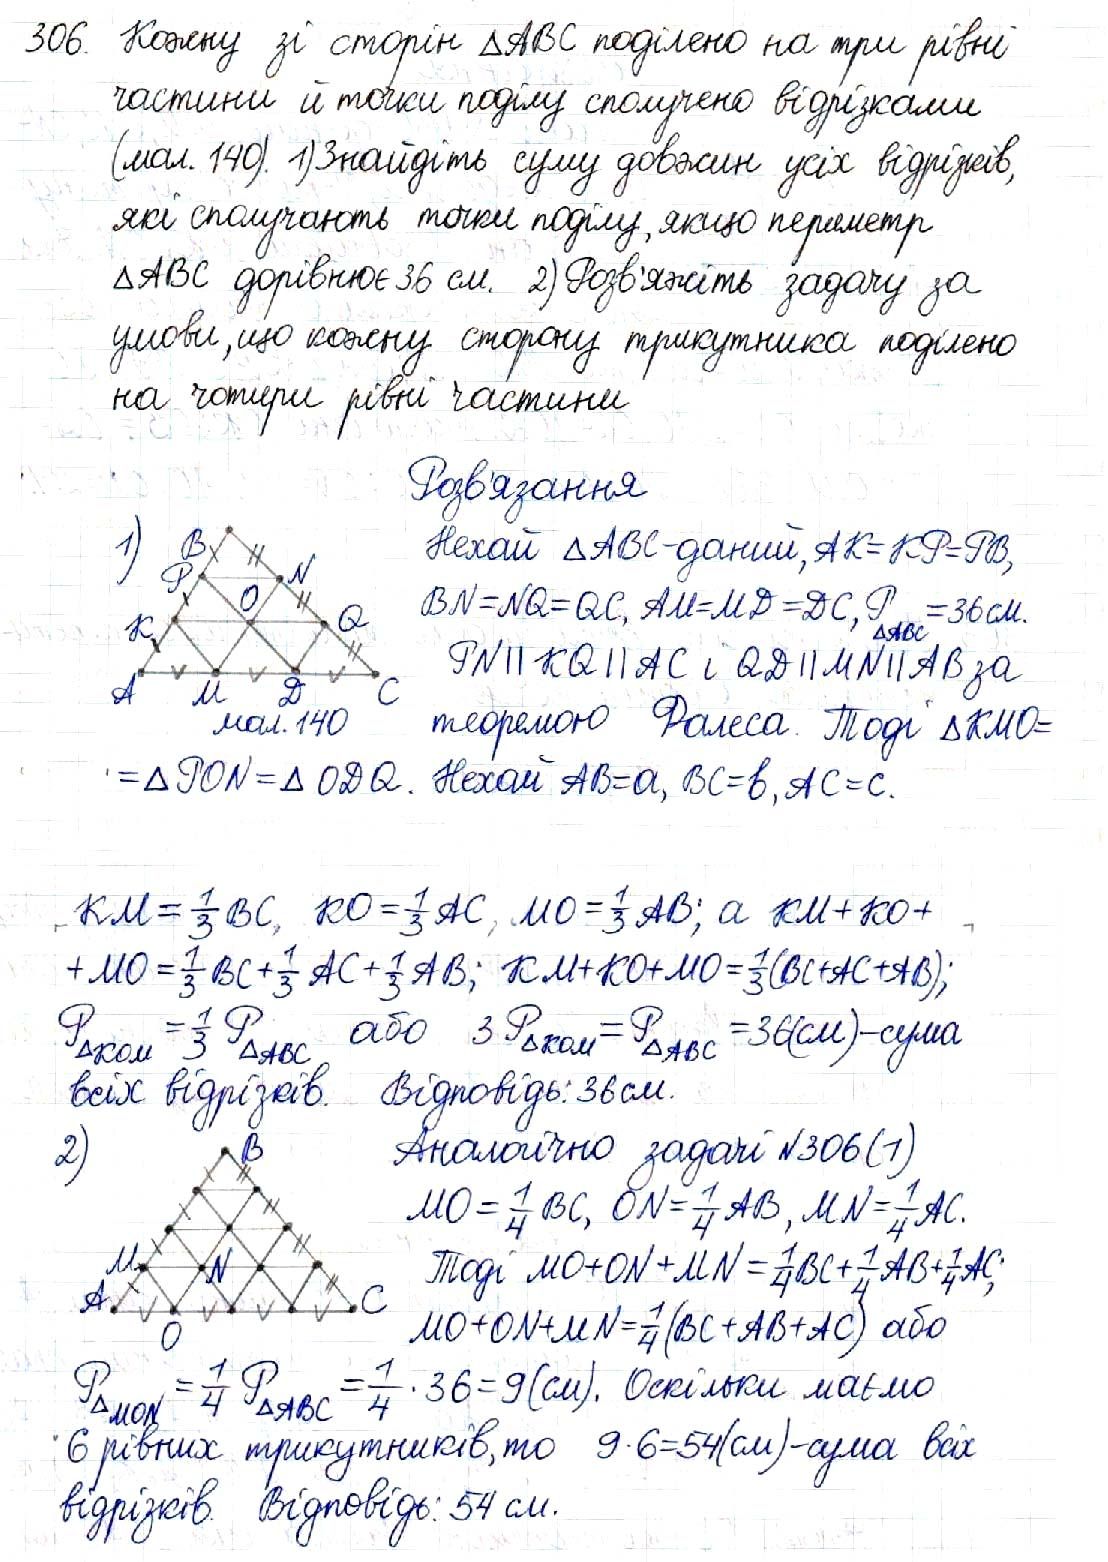 306. Кожну зі сторін △ABC поділено на три рівні
частини й точки поділу сполучено відрізками
(мал. 140). 1) Знайдіть суму довжин усіх відрізків,
які сполучають точки поділу, якщо периметр
△ABC дорівнює 36 см. 2) Розв'яжіть задачу за
умови, що кожну сторону трикутника поділено
на чотири рівні частини
Розв'язання
1)
B
P
N
O
K
Q
A
M
D
C
мал. 140
Нехай △ABC-даний, AK=KP=PB,
BN=NQ=QC, AM=MD=DC, P△ABC=36см.
PN||KQ||AC і QD||MN||AB за
теоремою Фалеса. Тоді △KMO=
=△PON=△ODQ. Нехай AB=a, BC=b, AC=c.
KM=1/3 BC, KO=1/3 AC, MO=1/3 AB; а KM+KO+
+MO=1/3 BC+1/3 AC+1/3 AB; KM+KO+MO=1/3(BC+AC+AB);
P△KOM=1/3 P△ABC або 3P△KOM=P△ABC=36(см)-сума
всіх відрізків. Відповідь: 36см.
2)
B
M
N
A
C
O
Аналогічно задачі №306(1)
MO=1/4 BC, ON=1/4 AB, MN=1/4 AC.
Тоді MO+ON+MN=1/4 BC+1/4 AB+1/4 AC;
MO+ON+MN=1/4(BC+AB+AC) або
P△MON=1/4 P△ABC=1/4·36=9(см). Оскільки маємо
6 рівних трикутників, то 9·6=54(см)-сума всіх
відрізків. Відповідь: 54 см.